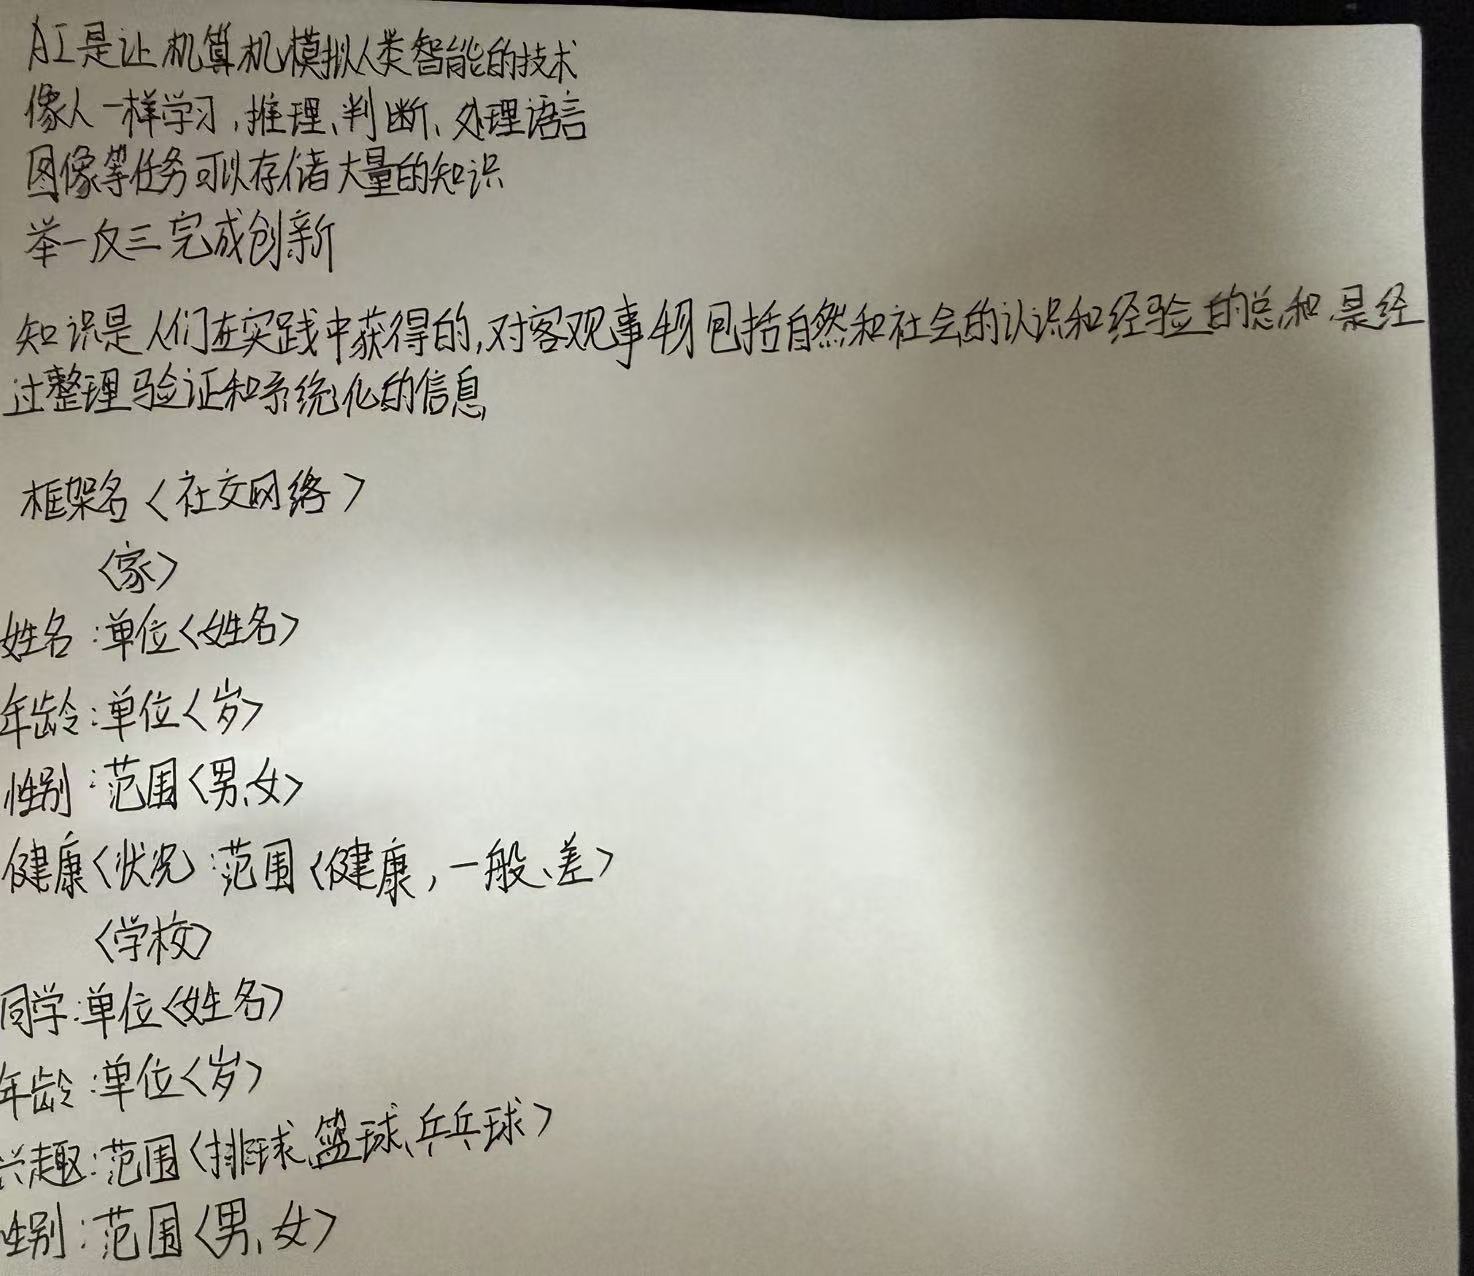 AI是让机算机模拟人类智能的技术
像人一样学习,推理、判断、处理语言
图像等任务可以存储大量的知识
举一反三完成创新
知识是人们在实践中获得的,对客观事物包括自然和社会的认识和经验的总和.是经
过整理验证和系统化的信息,
框架名〈社交网络〉
〈家〉
姓名:单位〈姓名〉
年龄:单位〈岁〉
性别:范围〈男、女〉
健康〈状况〉:范围〈健康,一般、差〉
〈学校〉
同学:单位〈姓名〉
年龄:单位〈岁〉
兴趣:范围〈排球、篮球、乒乓球〉
性别:范围〈男、女〉